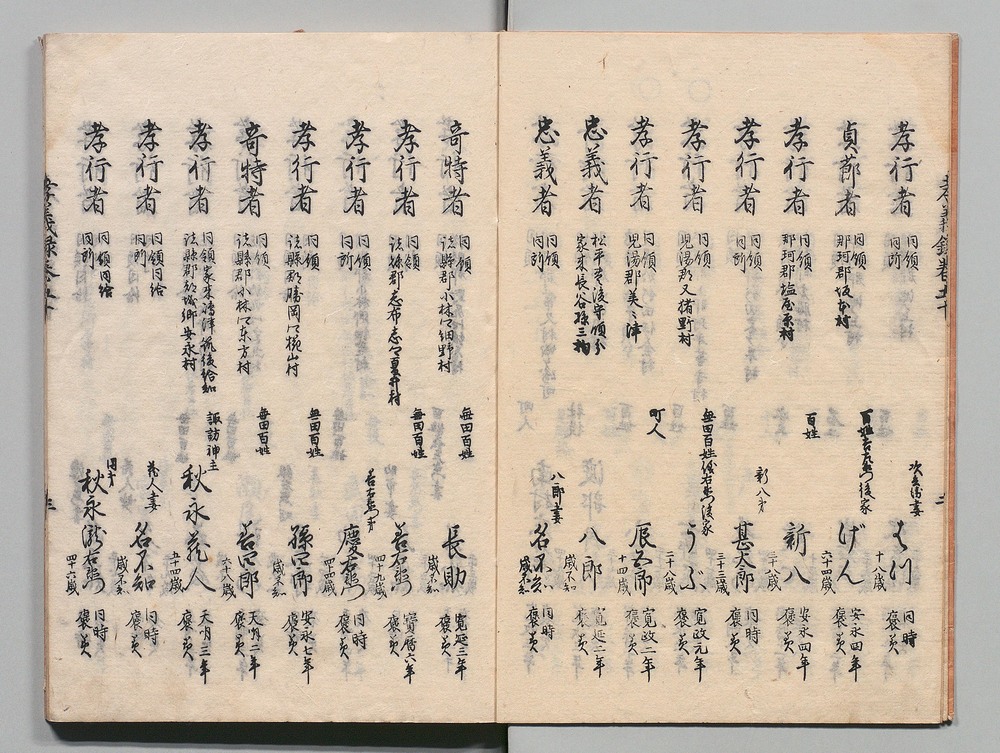 孝義録巻五十
孝行者 同領同所 次兵衛妻 はつ 十八歳 同時褒美
貞節者 同領那珂郡坂本村 百姓 後家 げん 六十四歳 安永四年褒美
孝行者 同領那珂郡塩屋原村 百姓 新八 三十八歳 安永四年褒美
孝行者 同領同所 新八弟 甚太郎 三十三歳 同時褒美
孝行者 同領児湯郡又猪野村 無田百姓 後家 うぶ 二十八歳 寛政元年褒美
孝行者 同領児湯郡美々津 町人 辰五郎 十四歳 寛政二年褒美
忠義者 松平 守領分家来長谷孫三拘 八郎 歳不知 寛延二年褒美
忠義者 同領同所 八郎妻 名不知 歳不知 同時褒美
奇特者 同領諸縣郡小林郷細野村 無田百姓 長助 歳不知 寛延三年褒美
孝行者 同領諸縣郡志布志郷夏井村 無田百姓 善右衛門 四十九歳 宝暦六年褒美
孝行者 同領同所 善右衛門弟 慶右衛門 四十四歳 同時褒美
孝行者 同領諸縣郡勝岡郷樺山村 無田百姓 孫四郎 歳不知 安永七年褒美
奇特者 同領諸縣郡小林郷東方村 無田百姓 善四郎 六十八歳 天明二年褒美
孝行者 同領家来嶋津筑後給知諸縣郡都城郷安永村 諏訪神主 秋永蔵人 五十四歳 天明三年褒美
孝行者 同領同給同所 蔵人妻 名不知 歳不知 同時褒美
孝行者 同領同給同所 同弟 秋永瀧右衛門 四十六歳 同時褒美
孝義録巻五十